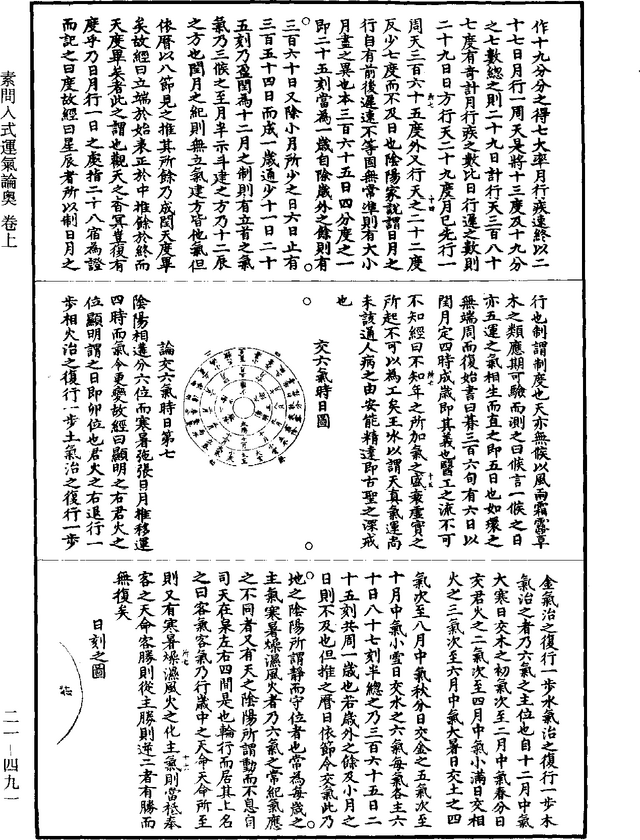 素問入式運氣論奧 卷上
作十九分分之得七大率月行疾速終以二
十七日月行一周天是將十三度及十九分
之七數總之則二十九日計行天三百八十
七度有奇計月行疾之數比日行遲之數則
二十九日日方行天二十九度月已先行一
周天三百六十五度外又行天之二十二度
反少七度而不及日也陰陽家說謂日月之
行自有前後遲速不等固無常準則有大小
月盡之異也本三百六十五日四分度之一
即二十五刻當為一歲自除歲外之餘則有
三百六十日又除小月所少之日六日止有
三百五十四日而成一歲通少十一日二十
五刻乃盈閏為十二月之制則有立首之氣
氣乃三候之至月半示斗建之方乃十二辰
之方也閏月之紀則無立氣建方皆他氣但
依曆以八節見之推其所餘乃成閏天度畢
矣故經曰立端於始表正於中推餘於終而
天度畢矣者此之謂也觀天之杳冥豈復有
度乎乃日月行一日之處指二十八宿為證
而記之曰度故經曰星辰者所以制日月之
行也制謂制度也天亦無候以風雨霜露草
木之類應期可驗而測之曰候言一候之日
亦五運之氣相生而直之即五日也如環之
無端周而復始書曰朞三百六旬有六日以
閏月定四時成歲即其義也醫工之流不可
不知經曰不知年之所加氣之盛衰虛實之
所起不可以為工矣王冰以謂天真氣運尚
未該通人病之由安能精達即古聖之深戒
也
交六氣時日圖
論交六氣時日第七
陰陽相遘分六位而寒暑弛張日月推移運
四時而氣令更變故經曰顯明之右君火之
位顯明謂之日即卯位也君火之右退行一
步相火治之復行一步土氣治之復行一步
金氣治之復行一步水氣治之復行一步木
氣治之者乃六氣之主位也自十二月中氣
大寒日交木之初氣次至二月中氣春分日
交君火之二氣次至四月中氣小滿日交相
火之三氣次至六月中氣大暑日交土之四
氣次至八月中氣秋分日交金之五氣次至
十月中氣小雪日交水之六氣每氣各主六
十日八十七刻半總之乃三百六十五日二
十五刻共周一歲也若歲外之餘及小月之
日則不及也但推之曆日依節令交氣此乃
地之陰陽所謂靜而守位者也常為每歲之
主氣寒暑燥濕風火者乃六氣之常紀氣應
之不同者又有天之陰陽所謂動而不息自
司天在泉左右四間是也輪行而居其上名
之曰客氣客氣乃行歲中之天命天命所至
則又有寒暑燥濕風火之化主氣則當祇奉
客之天命客勝則從主勝則逆二者有勝而
無復矣
日刻之圖
二一-四九一